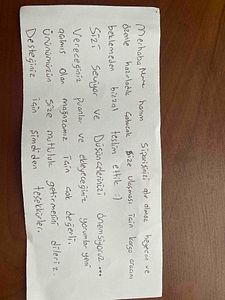 Merhaba Nur hanım Siparişinizi alır almaz heyecan ve
özenle hazırladık. Gelecek Size ulaşması için kargo aracını
beklemeden bizzat teslim ettik :)
Sizi Seviyor ve Düşüncelerinizi önemsiyoruz...
Vereceğiniz puanlar ve ekleyeceğiniz yorumlar yeni
açılmış olan mağazamız için çok değerli.
Ürünümüzün size mutluluk getirmesini dileriz.
Desteğiniz için şimdiden teşekkürler.